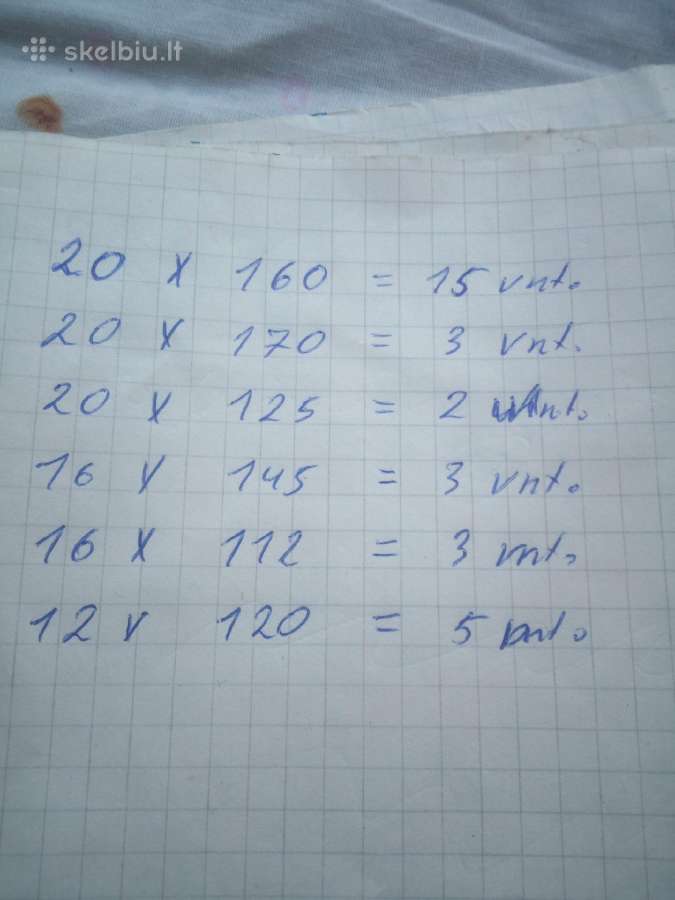 skelbiu.lt
20 x 160 = 15 vnt.
20 x 170 = 3 vnt.
20 x 125 = 2 vnt.
16 x 145 = 3 vnt.
16 x 112 = 3 vnt.
12 x 120 = 5 vnt.